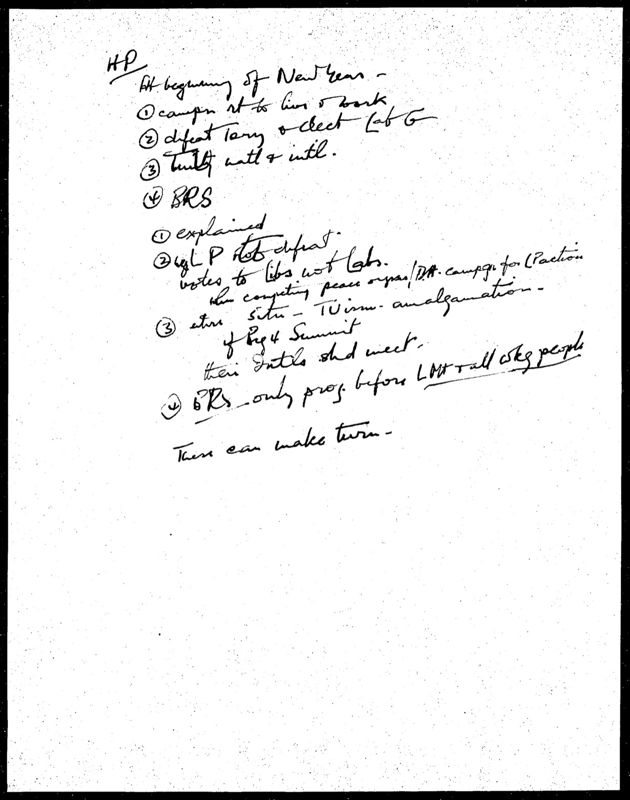 HP
At beginning of New Year -
① campn rt to live & work
② defeat Tory & elect Lab G
③ Unity natl & intl.
④ BRS
① explained
② LP not defeat.
votes to Libs not Labs.
when competing peace orgns / campgs for LP action
③ situ - TU ism - amalgamation -
of Big 4 Summit
their Intls shd meet.
④ BRS - only prog. before LM & all wkg people
These can make turn -